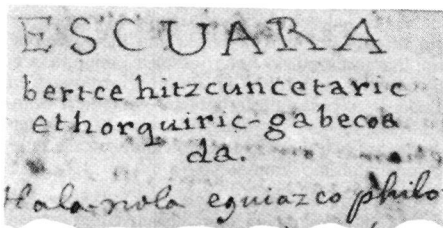 ESCUARA
bertce hitzcuncetaric
ethorquiric-gabecoa
da.
Hala-nola eguiazco philo